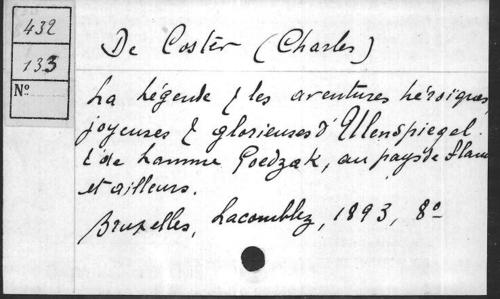 432
133
N°
De Coster (Charles)
La légende & les aventures héroiques,
joyeuses & glorieuses d'Ulenspiegel
& de Lamme Goedzak, au pays de Flan
et ailleurs.
Bruxelles, Lacomblez, 1893, 8°